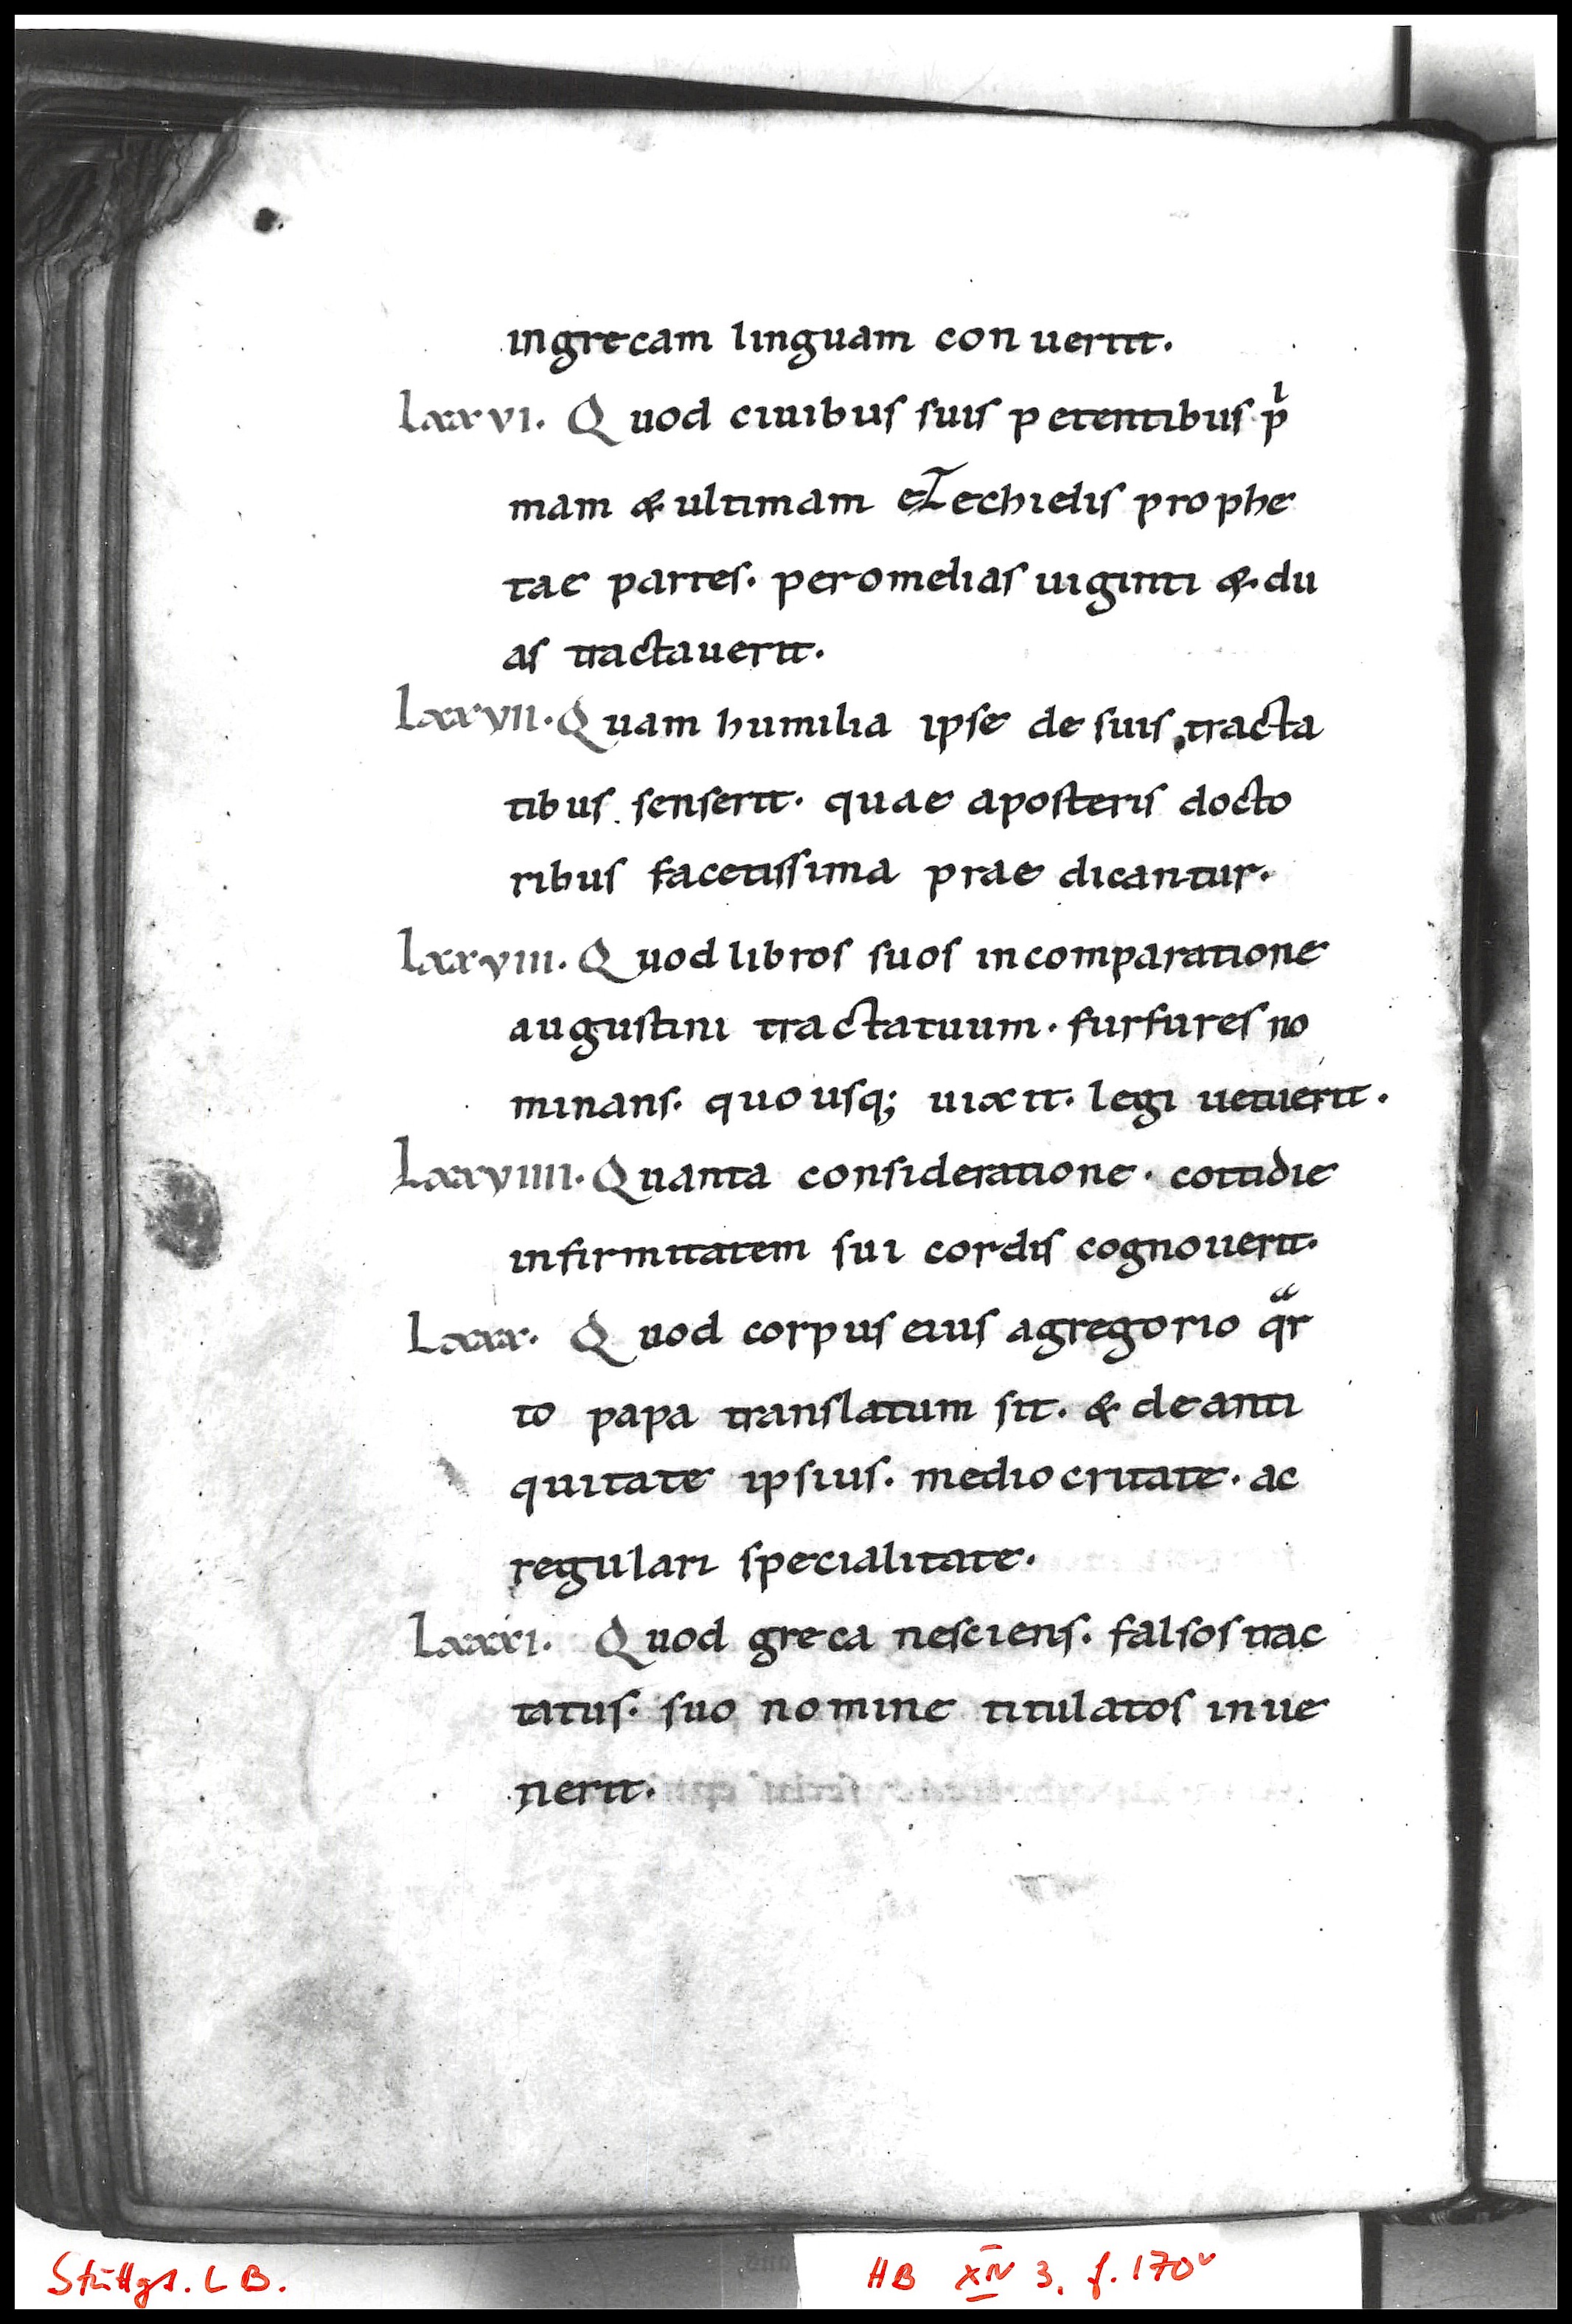 ingrecam linguam conuertit.
lxxvi. Quod ciuibus suis petentibus p̍
mam & ultimam ezechielis prophe
tae partes. per omelias uiginti &. du
as tractauerit.
lxxvii. Quam humilia ipse de suis tracta
tibus senserit. quae aposteris docto
ribus facetissima prae dicantur.
lxxviii. Quod libros suos incomparatione
augustini tractatuum. furfures no
minans. quousq; uixit. legi uetuerit.
Lxxviiii. Quanta consideratione. cottidie
infirmitatem sui cordis cognouerit.
Lxxx. Quod corpus eius agregorio qͣr
to papa translatum sit. & de anti
quitate ipsius. mediocritate. ac
regulari specialitate.
Lxxxi. Quod greca nesciens. falsos trac
tatus. suo nomine titulatos inue
nerit.
Stuttgt. LB.
HB XIV 3, f. 170v